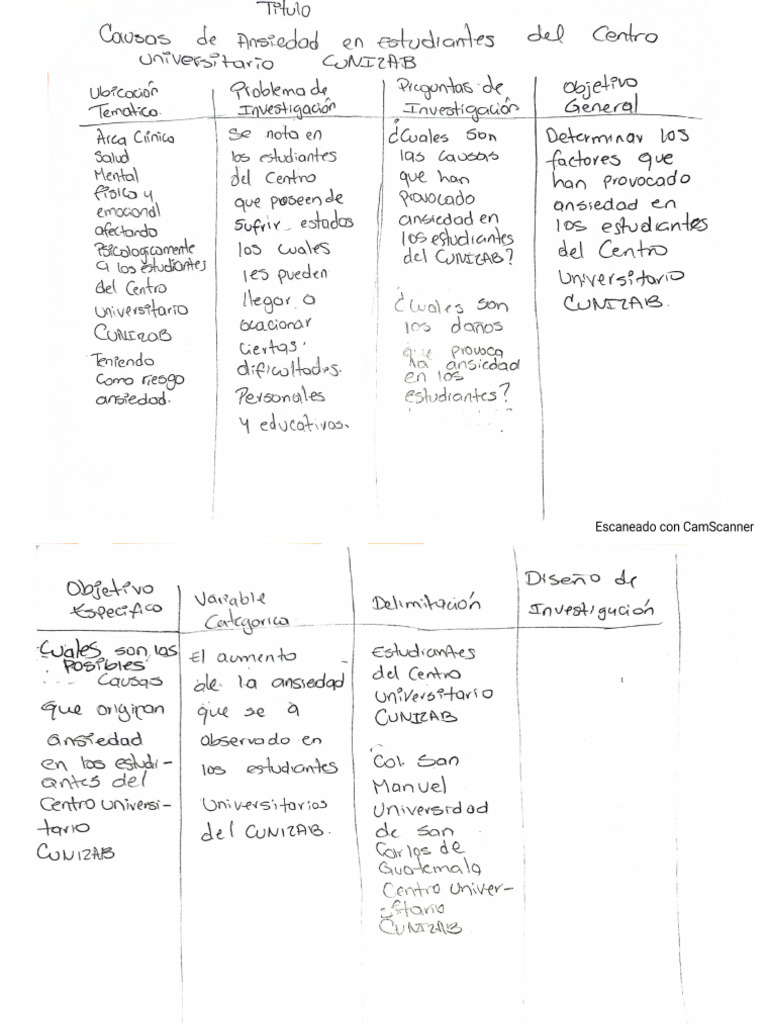 Titulo
Causas de Ansiedad en estudiantes del Centro
universitario CUNIZAB
Ubicación
Tematica.
Area Clinica
Salud
Mental
fisico y
emocional
afectando
Psicologicamente
a los estudiantes
del Centro
universitario
CUNIZAB
Teniendo
como riesgo
ansiedad.
Problema de
Investigación
Se nota en
los estudiantes
del Centro
que poseen de
Sufrir estados
los cuales
les pueden
llegar a
ocacionar
ciertas
dificultades.
Personales
y educativos.
Preguntas de
Investigación
¿Cuales son
las causas
que han
provocado
ansiedad en
los estudiantes
del CUNIZAB?
¿Cuales son
los daños
que provoca
la ansiedad
en los
estudiantes?
Objetivo
General
Determinar los
factores que
han provocado
ansiedad en
los estudiantes
del Centro
Universitario
CUNIZAB.
Escaneado con CamScanner
Objetivo
Especifico
Cuales son las
Posibles
Causas
que originan
ansiedad
en los estudi-
antes del
Centro universi-
tario
CUNIZAB
Variable
Categorica
El aumento
de la ansiedad
que se a
observado en
los estudiantes
Universitarios
del CUNIZAB.
Delimitación
Estudiantes
del Centro
universitario
CUNIZAB
Col. San
Manuel
Universidad
de San
Carlos de
Guatemala
Centro Univer-
sitario
CUNIZAB
Diseño de
Investigación